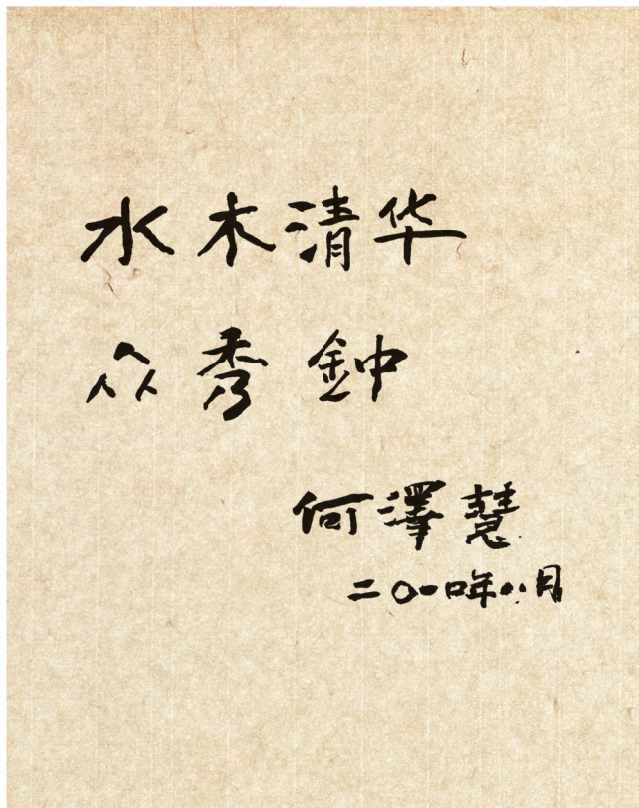 水木清华
众秀鈡
何澤慧
二〇一〇年八月